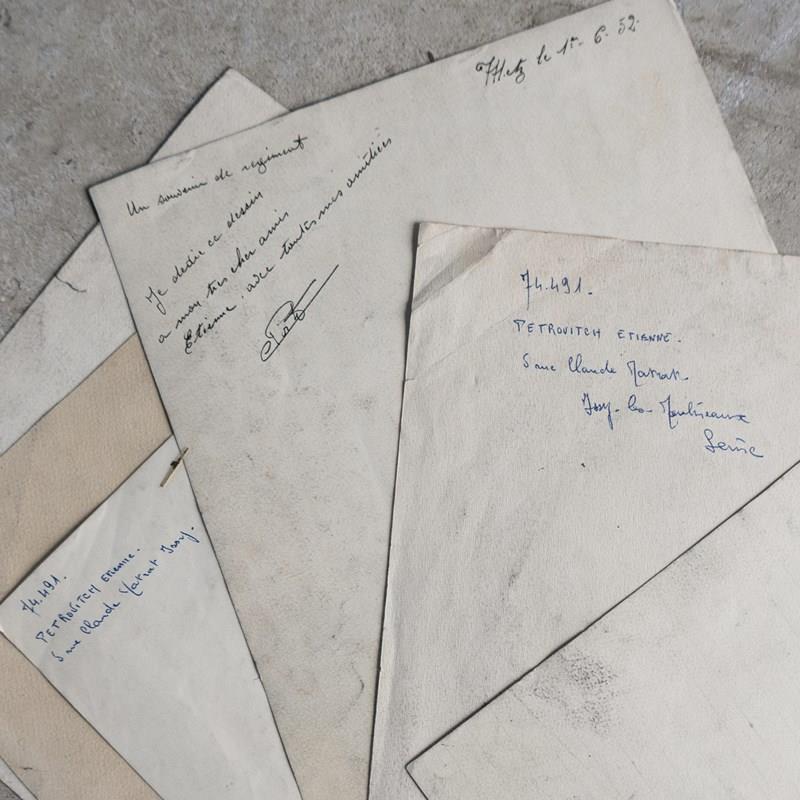 Metz le 1er 6. 52.
Un souvenir de regiment
Je dedie ce dessin
a mon très cher amis
Etienne, avec toutes mes amitiées
74.491.
PETROVITCH ETIENNE.
5 rue Claude Matrat.
Issy-les-Moulineaux
Seine
74.491.
PETROVITCH Etienne.
5 rue Claude Matrat Issy.